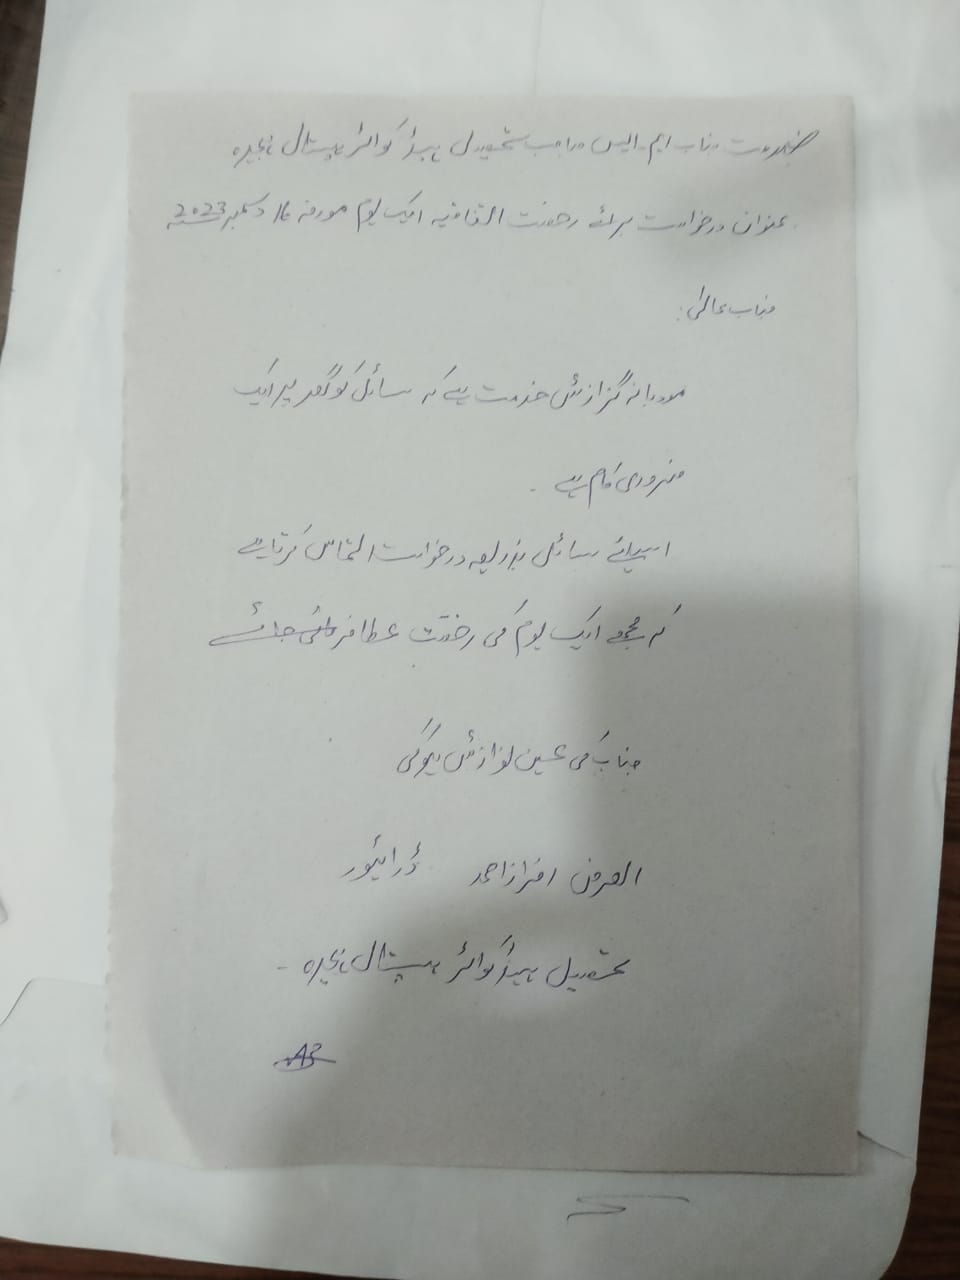 بخدمت جناب ایم۔ایس صاحب تحصیل ہیڈ کوائٹر ہسپتال ہجیرہ
عنوان درخواست برائے رخصت اتفاقیہ ایک یوم مورخہ 16 دسمبر 2023
جناب عالی!
مودبانہ گزارش خدمت ہے کہ سائل کو گھر پر ایک
ضروری کام ہے۔
اسلیئے سائل بذریعہ درخواست التماس کرتا ہے
کہ مجھے ایک یوم کی رخصت عطا فرمائی جائے
جناب کی عین نوازش ہوگی
العرض افراز احمد ڈرائیور
تحصیل ہیڈ کوائٹر ہسپتال ہجیرہ۔